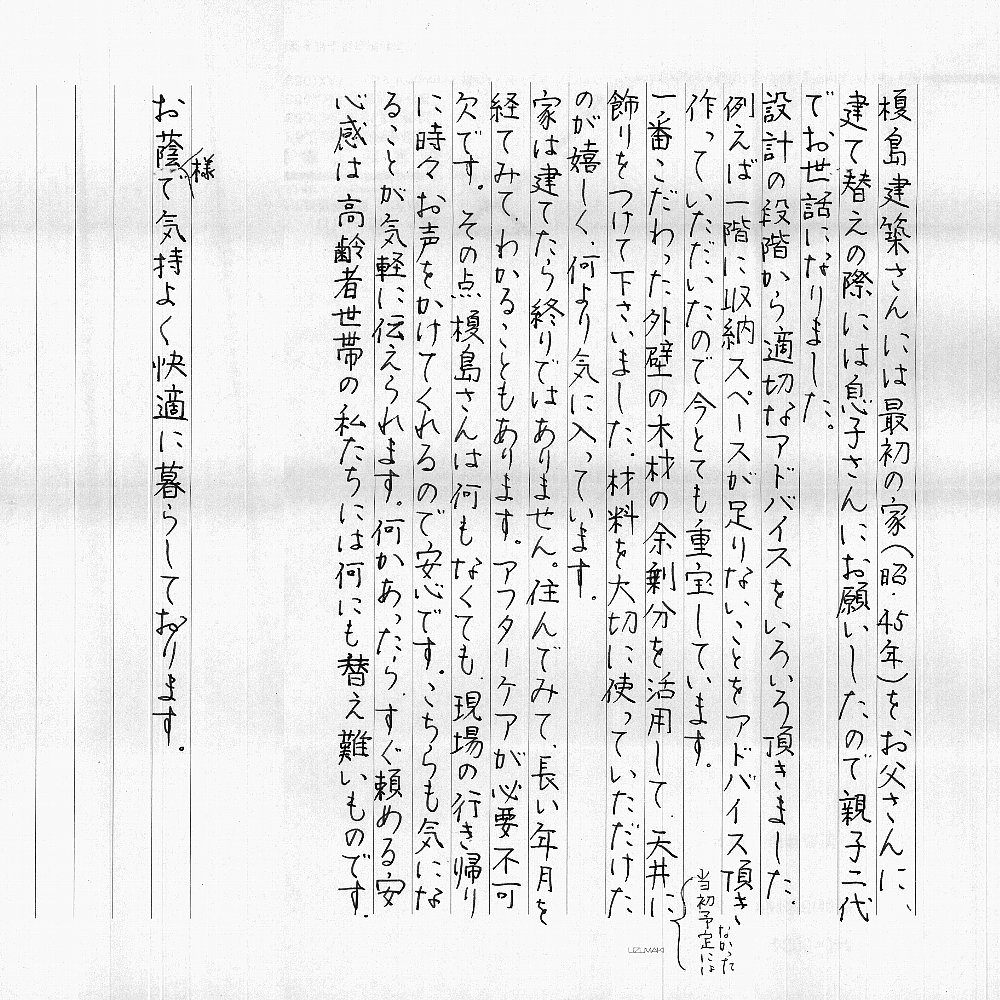 榎島建築さんには最初の家(昭・45年)をお父さんに、
建て替えの際には息子さんにお願いしたので親子二代
でお世話になりました。
設計の段階から適切なアドバイスをいろいろ頂きました。
例えば一階に収納スペースが足りないことをアドバイス頂き、
作っていただいたので今とても重宝しています。
一番こだわった外壁の木材の余剰分を活用して、天井に
当初予定には
なかった
飾りをつけて下さいました。材料を大切に使っていただけた
のが嬉しく、何より気に入っています。
家は建てたら終りではありません。住んでみて、長い年月を
経てみて、わかることもあります。アフターケアが必要不可
欠です。その点榎島さんは何もなくても、現場の行き帰り
に時々お声をかけてくれるので安心です。こちらも気にな
ることが気軽に伝えられます。何かあったら、すぐ頼める安
心感は高齢者世帯の私たちには何にも替え難いものです。
様
お蔭で気持よく快適に暮らしております。
UZUMAKI